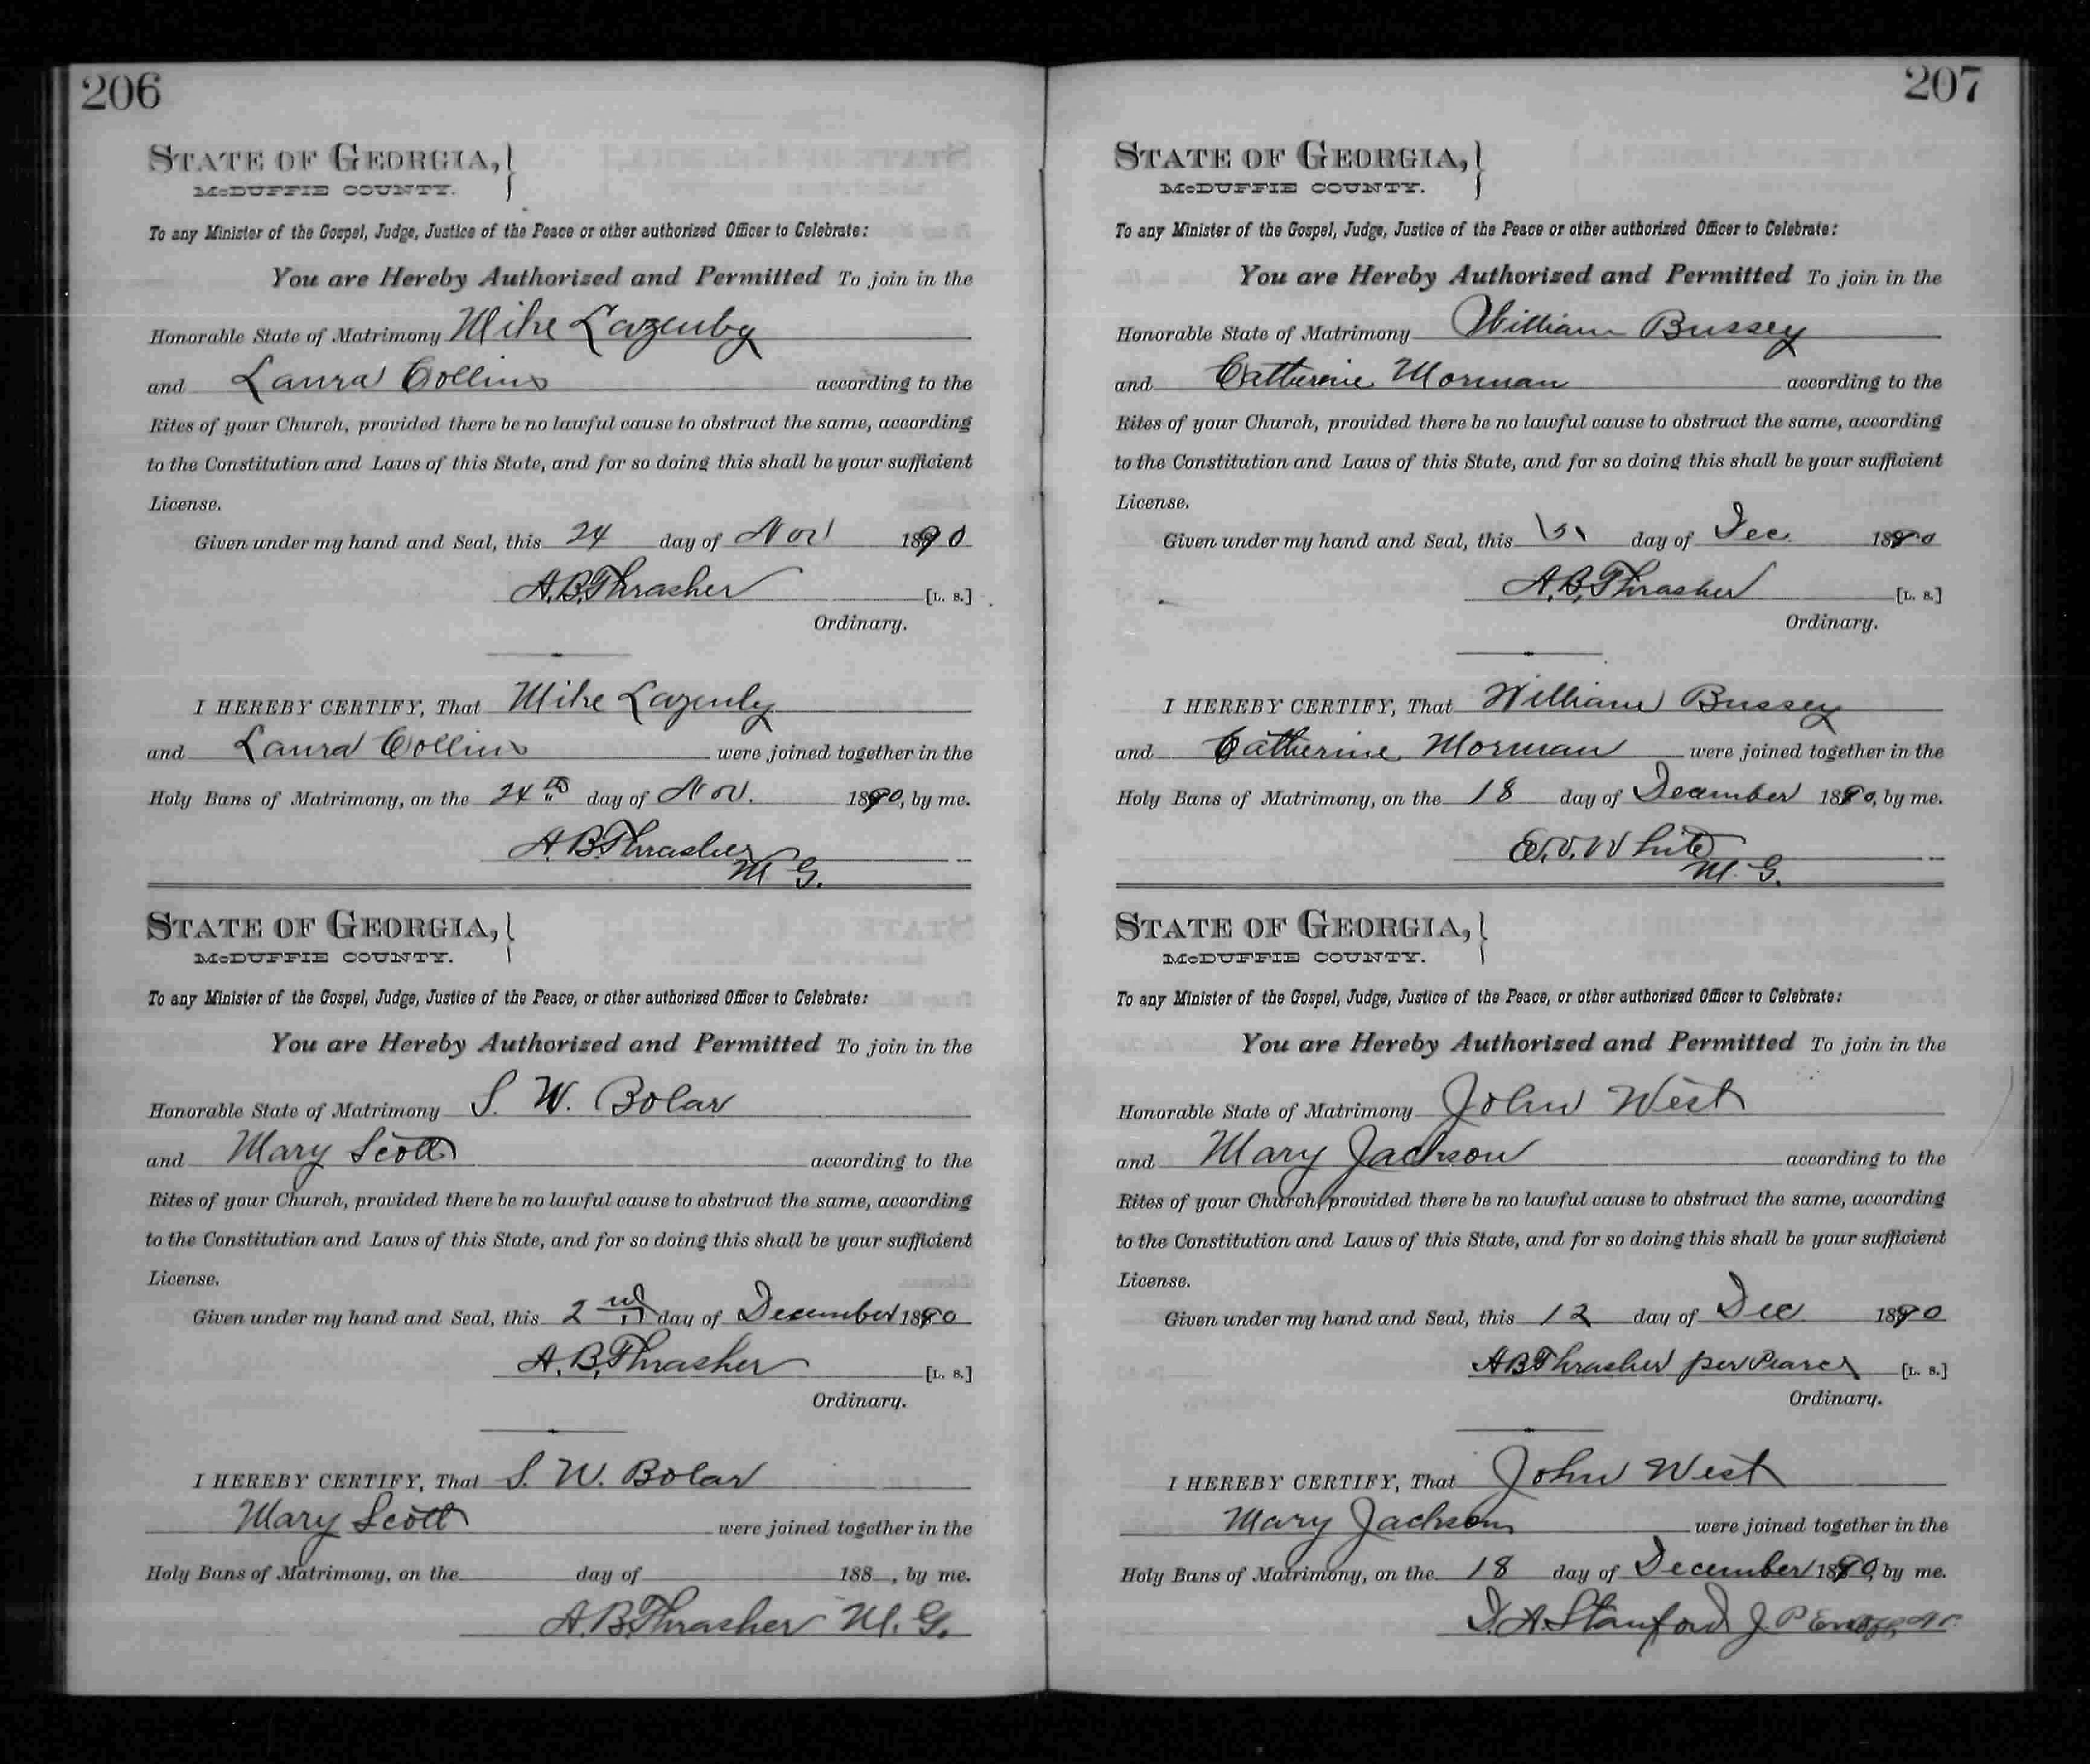 206
STATE OF GEORGIA,
McDUFFIE COUNTY.
To any Minister of the Gospel, Judge, Justice of the Peace or other authorized Officer to Celebrate:
You are Hereby Authorized and Permitted To join in the
Honorable State of Matrimony Mike Lazenby
and Laura Collins according to the
Rites of your Church, provided there be no lawful cause to obstruct the same, according
to the Constitution and Laws of this State, and for so doing this shall be your sufficient
License.
Given under my hand and Seal, this 24 day of Nov 1890
A. B. Thrasher [L. S.]
Ordinary.
I HEREBY CERTIFY, That Mike Lazenby
and Laura Collins were joined together in the
Holy Bans of Matrimony, on the 24th day of Nov. 1890, by me.
A. B. Thrasher
M G.
STATE OF GEORGIA,
McDUFFIE COUNTY.
To any Minister of the Gospel, Judge, Justice of the Peace, or other authorized Officer to Celebrate:
You are Hereby Authorized and Permitted To join in the
Honorable State of Matrimony S. W. Bolar
and Mary Scott according to the
Rites of your Church, provided there be no lawful cause to obstruct the same, according
to the Constitution and Laws of this State, and for so doing this shall be your sufficient
License.
Given under my hand and Seal, this 2nd day of December 1890
A. B. Thrasher [L. S.]
Ordinary.
I HEREBY CERTIFY, That S. W. Bolar
Mary Scott were joined together in the
Holy Bans of Matrimony, on the day of 188 , by me.
A. B. Thrasher M. G.
207
STATE OF GEORGIA,
McDUFFIE COUNTY.
To any Minister of the Gospel, Judge, Justice of the Peace or other authorized Officer to Celebrate:
You are Hereby Authorized and Permitted To join in the
Honorable State of Matrimony William Bussey
and Catherine Morman according to the
Rites of your Church, provided there be no lawful cause to obstruct the same, according
to the Constitution and Laws of this State, and for so doing this shall be your sufficient
License.
Given under my hand and Seal, this day of Dec. 1890
A. B. Thrasher [L. S.]
Ordinary.
I HEREBY CERTIFY, That William Bussey
and Catherine Morman were joined together in the
Holy Bans of Matrimony, on the 18 day of December 1890, by me.
E. V. White
M. G.
STATE OF GEORGIA,
McDUFFIE COUNTY.
To any Minister of the Gospel, Judge, Justice of the Peace, or other authorized Officer to Celebrate:
You are Hereby Authorized and Permitted To join in the
Honorable State of Matrimony John West
and Mary Jackson according to the
Rites of your Church, provided there be no lawful cause to obstruct the same, according
to the Constitution and Laws of this State, and for so doing this shall be your sufficient
License.
Given under my hand and Seal, this 12 day of Dec 1890
A B Thrasher per Pearce [L. S.]
Ordinary.
I HEREBY CERTIFY, That John West
Mary Jackson were joined together in the
Holy Bans of Matrimony, on the 18 day of December 1890, by me.
D. A. Stanford J. P.